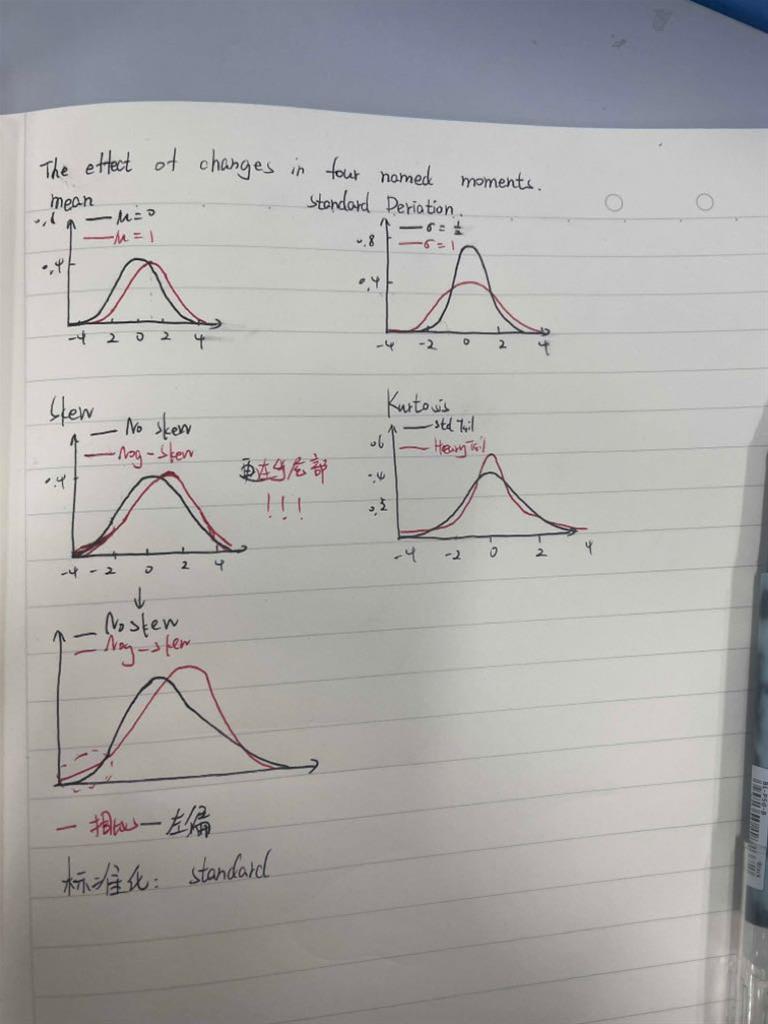 The effect of changes in four named moments.
mean
0.6 — μ=0
— μ=1
0.4
-4 2 0 2 4
Standard Deriation.
0.8 — σ=½
— σ=1
0.4
-4 -2 0 2 4
Skew
— No skew
— Nog-skew
0.4
-4 -2 0 2 4
看左与尾部
!!!
Kurtosis
— std Tail
0.6 — Heavy Tail
0.4
0.2
-4 -2 0 2 4
↓
— No skew
— Nog-skew
— 相比 — 左偏
标准化: standard